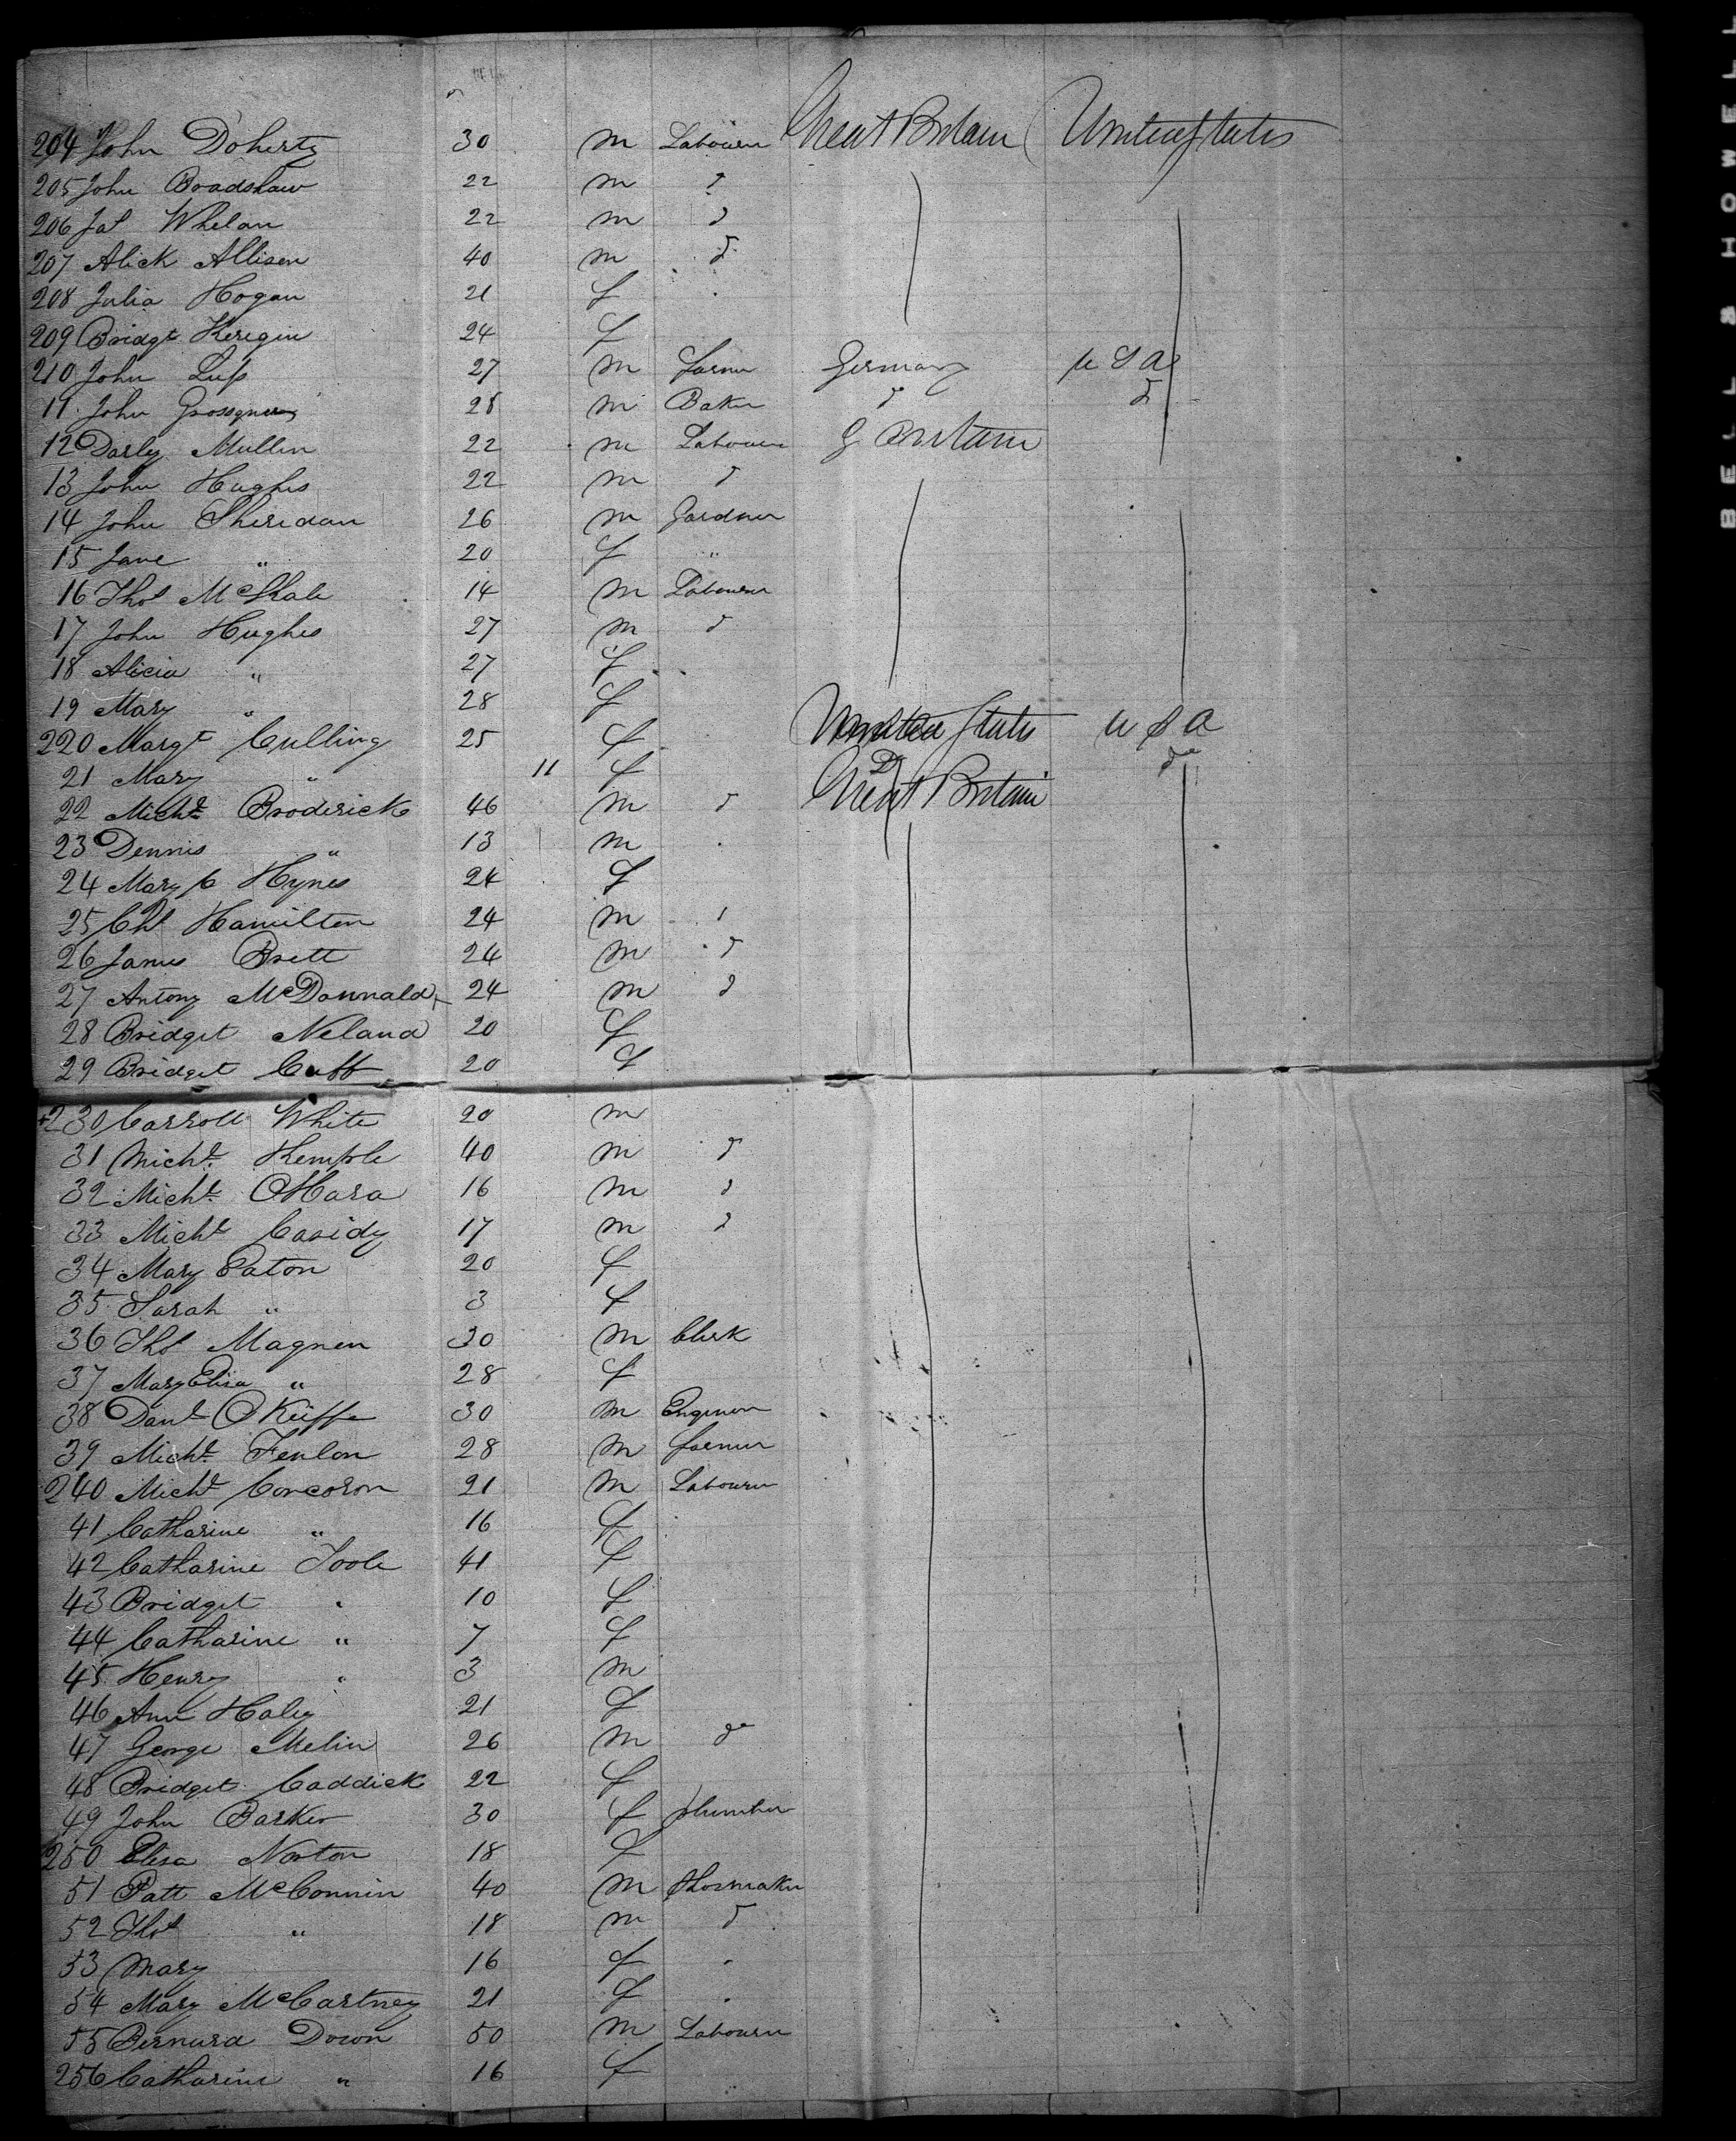 204 John Doherty 30 m Labourer Great Britain United States
205 John Bradshaw 22 m d
206 Jas Whelan 22 m d
207 Alick Allison 40 m d
208 Julia Hogan 21 f
209 Bridgt Keregin 24 f
210 John 27 m farmer Germany U S A
11 John 28 m Baker d d
12 Darby Mullen 22 m Labourer G Britain
13 John Hughes 22 m d
14 John Sheridan 26 m Gardner
15 Jane " 20 f "
16 Thos McHale 14 m Labourer
17 John Hughes 27 m d
18 Alicia " 27 f
19 Mary " 28 f
220 Margt Culling 25 f United States U S A
21 Mary " 11 f Do do
22 Michl Broderick 46 m d Great Britain
23 Dennis " 13 m
24 Mary C Hynes 24 f
25 Chs Hamilton 24 m
26 James Brett 24 m d
27 Antony McDonnald 24 m d
28 Bridget Neland 20 f
29 Bridget Cuff 20 f
230 Carroll White 20 m
31 Michl Kemple 40 m d
32 Michl OHara 16 m d
33 Michl Casidy 17 m d
34 Mary Eaton 20 f
35 Sarah " 3 f
36 Thos Magnen 30 m Clerk
37 Mary Elisa " 28 f
38 Danl OKeiffe 30 m Engineer
39 Michl Fenlon 28 m farmer
240 Michl Corcoron 21 m Labourer
41 Catharine " 16 f
42 Catharine Toole 41 f
43 Bridget " 10 f
44 Catharine " 7 f
45 Henry " 3 m
46 Ann Haley 21 f
47 George Melin 26 m do
48 Bridget Caddick 22 f
49 John Barker 30 f plumber
250 Elisa Norton 18 f
51 Patt McConnin 40 m Shoemaker
52 Thos " 18 m d
53 Mary 16 f
54 Mary McCartney 21 f
55 Bernard Doron 50 m Labourer
256 Catharine " 16 f
BELL & HOWELL